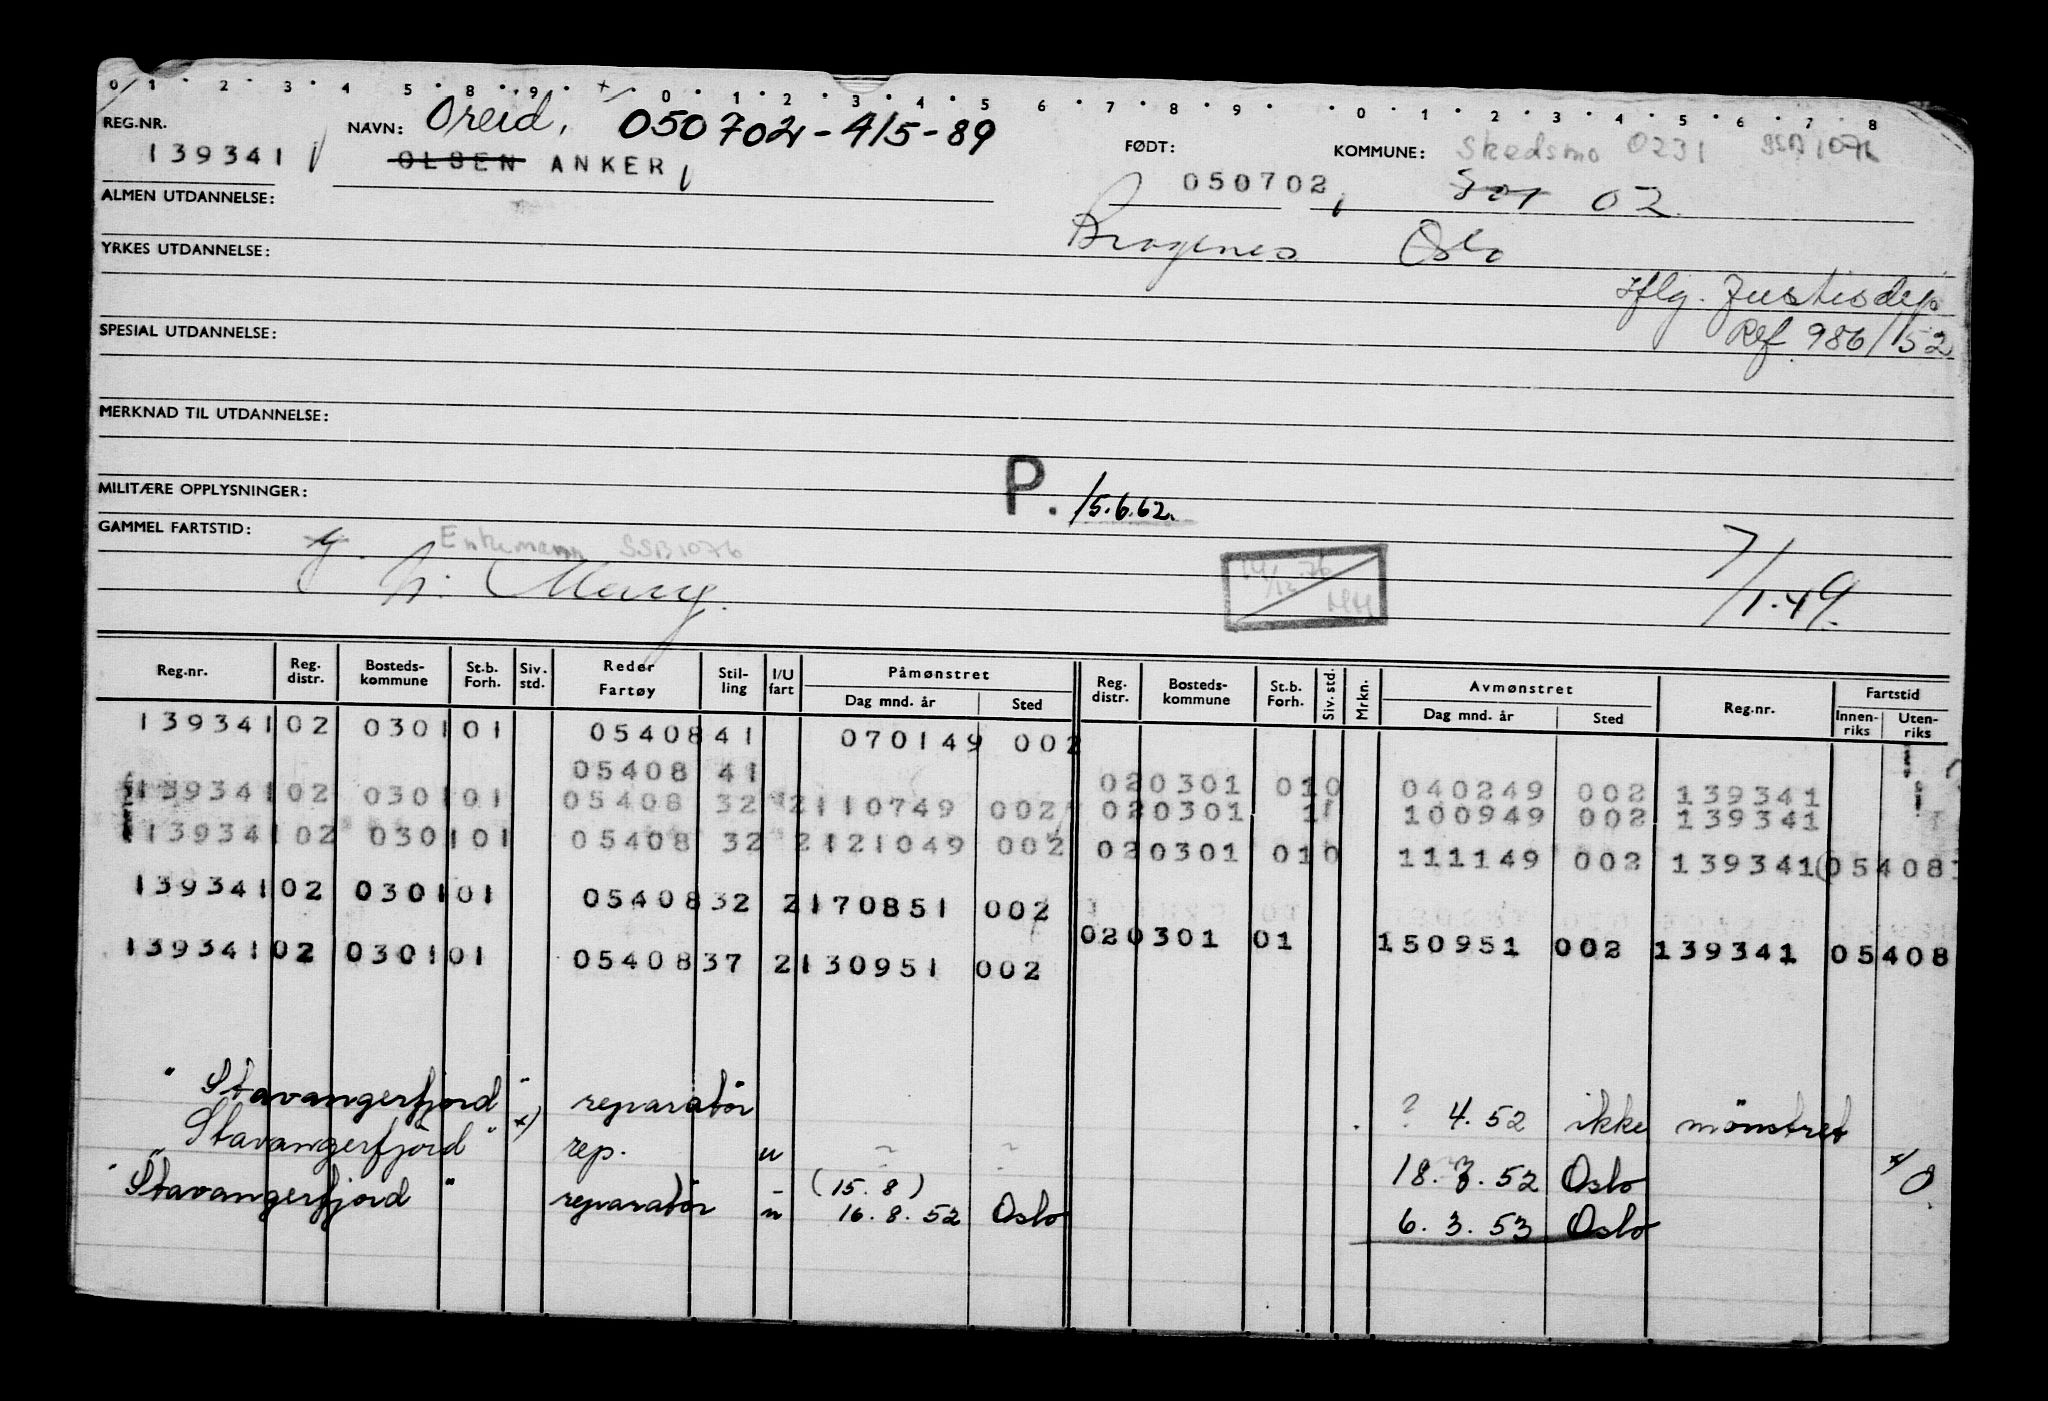 0 1 2 3 4 5 8 9 0 1 2 3 4 5 6 7 8 9 0 1 2 3 4 5 6 7 8
REG.NR. NAVN: Oreid, 050702-415-89 FØDT: KOMMUNE: Skedsmo 0231 SSB1076
139341 OLSEN ANKER 050702 02
ALMEN UTDANNELSE:
YRKES UTDANNELSE: Bragenes Oslo
Iflg. Justisdep
SPESIAL UTDANNELSE: Ref. 986/52
MERKNAD TIL UTDANNELSE:
MILITÆRE OPPLYSNINGER: P. 15.6.62.
GAMMEL FARTSTID: g. Enkemann SSB1076
h. Mary. 7/1.49.
Reg.nr. Reg. distr. Bosteds-kommune St.b. Forh. Siv. std. Reder Fartøy Stil-ling I/U fart Påmønstret Dag mnd. år Sted Reg. distr. Bosteds-kommune St.b. Forh. Siv. std. Mrkn. Avmønstret Dag mnd. år Sted Reg.nr. Fartstid Innen-riks Uten-riks
139341 02 0301 01 05408 41 070149 002
05408 41 02 0301 01 0 040249 002 139341
139341 02 0301 01 05408 32 2 110749 002 02 0301 11 100949 002 139341
139341 02 0301 01 05408 32 2 121049 002 02 0301 01 0 111149 002 139341 05408
139341 02 0301 01 05408 32 2 170851 002
02 0301 01 150951 002 139341 05408
139341 02 0301 01 05408 37 2 130951 002
"Stavangerfjord" reparatör ? 4.52 ikke mönstret
"Stavangerfjord" x) rep. u ~ ~ 18.3.52 Oslo x/
"Stavangerfjord" reparatör u (15.8) 16.8.52 Oslo 6.3.53 Oslo